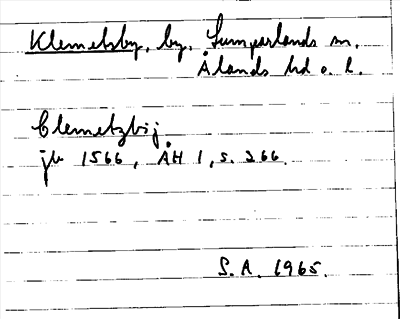 Klemetsby, by, Lumparlands sn,
Ålands hd o. l.
Clemetzbij
jb 1566, ÅH 1, s. 266.
S.A. 1965.